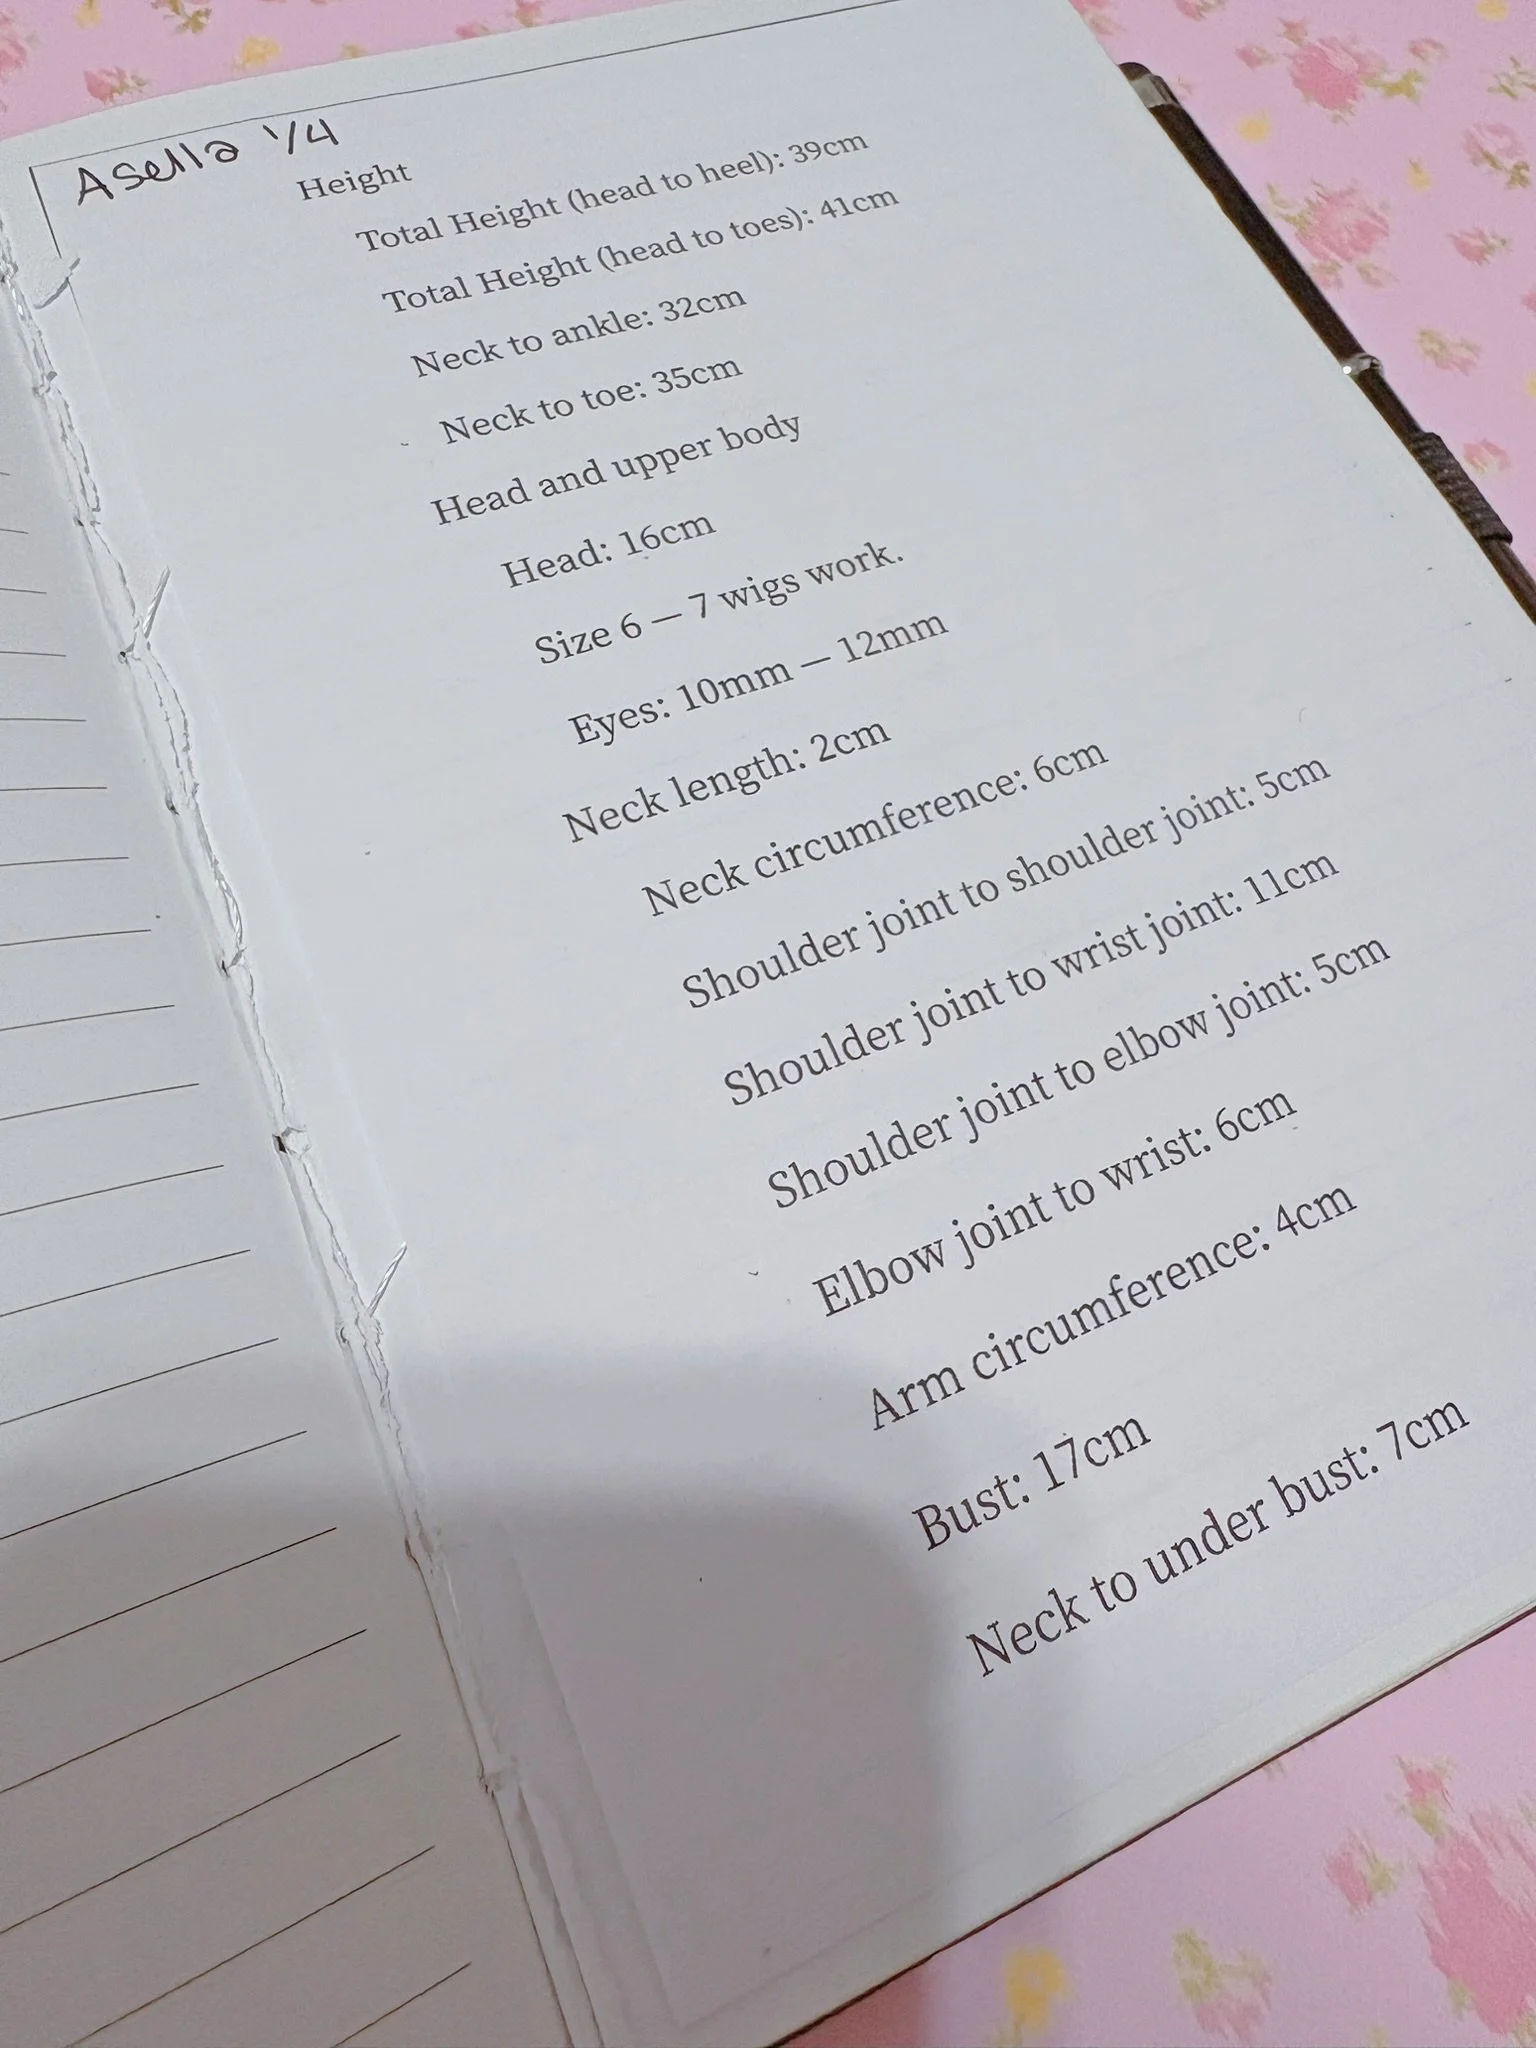 Asella 1/4
Height
Total Height (head to heel): 39cm
Total Height (head to toes): 41cm
Neck to ankle: 32cm
Neck to toe: 35cm
Head and upper body
Head: 16cm
Size 6 – 7 wigs work.
Eyes: 10mm – 12mm
Neck length: 2cm
Neck circumference: 6cm
Shoulder joint to shoulder joint: 5cm
Shoulder joint to wrist joint: 11cm
Shoulder joint to elbow joint: 5cm
Elbow joint to wrist: 6cm
Arm circumference: 4cm
Bust: 17cm
Neck to under bust: 7cm